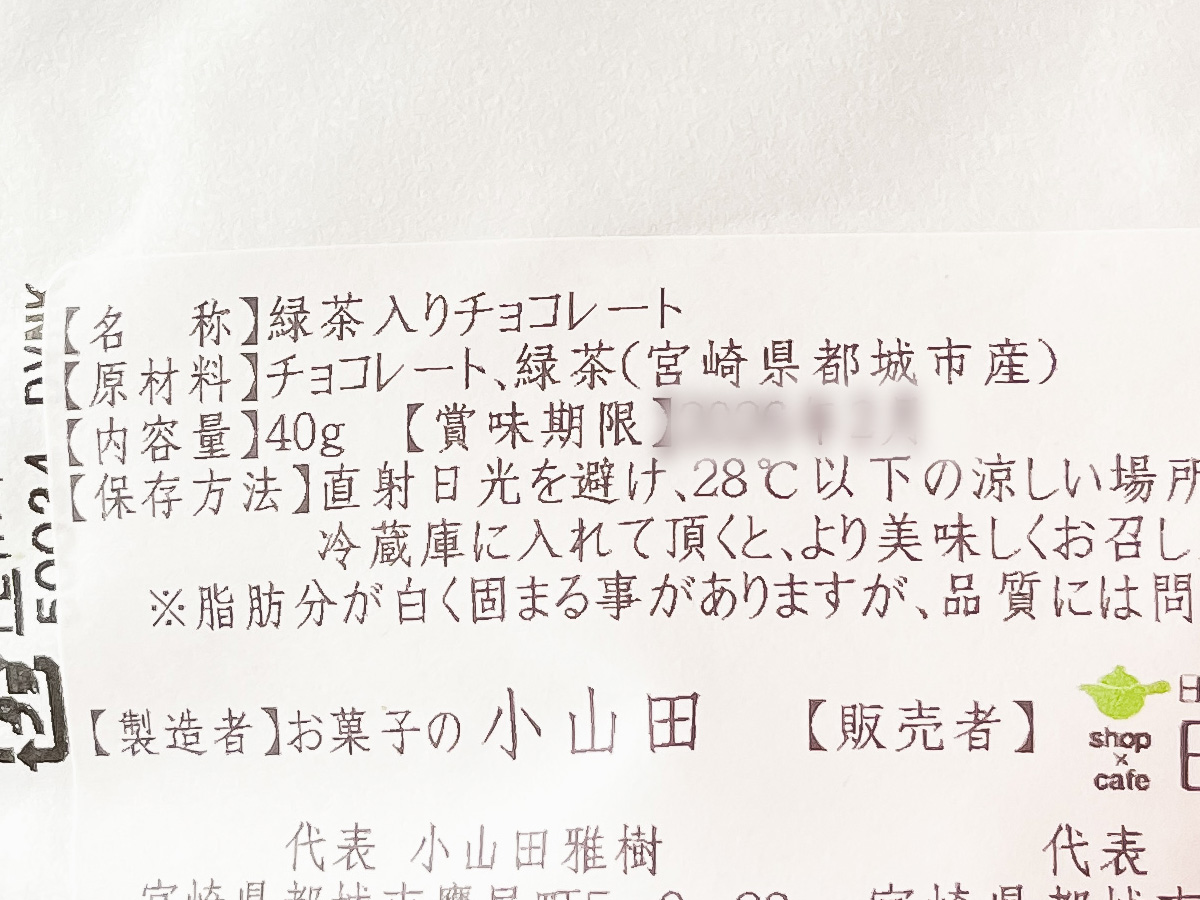 【名　称】緑茶入りチョコレート
【原材料】チョコレート、緑茶(宮崎県都城市産)
【内容量】40g 【賞味期限】
【保存方法】直射日光を避け、28℃以下の涼しい場所
冷蔵庫に入れて頂くと、より美味しくお召し
※脂肪分が白く固まる事がありますが、品質には問
【製造者】お菓子の小山田 【販売者】
shop
×
cafe
代表 小山田雅樹 代表
宮崎県都城市鷹尾 宮崎県都城市